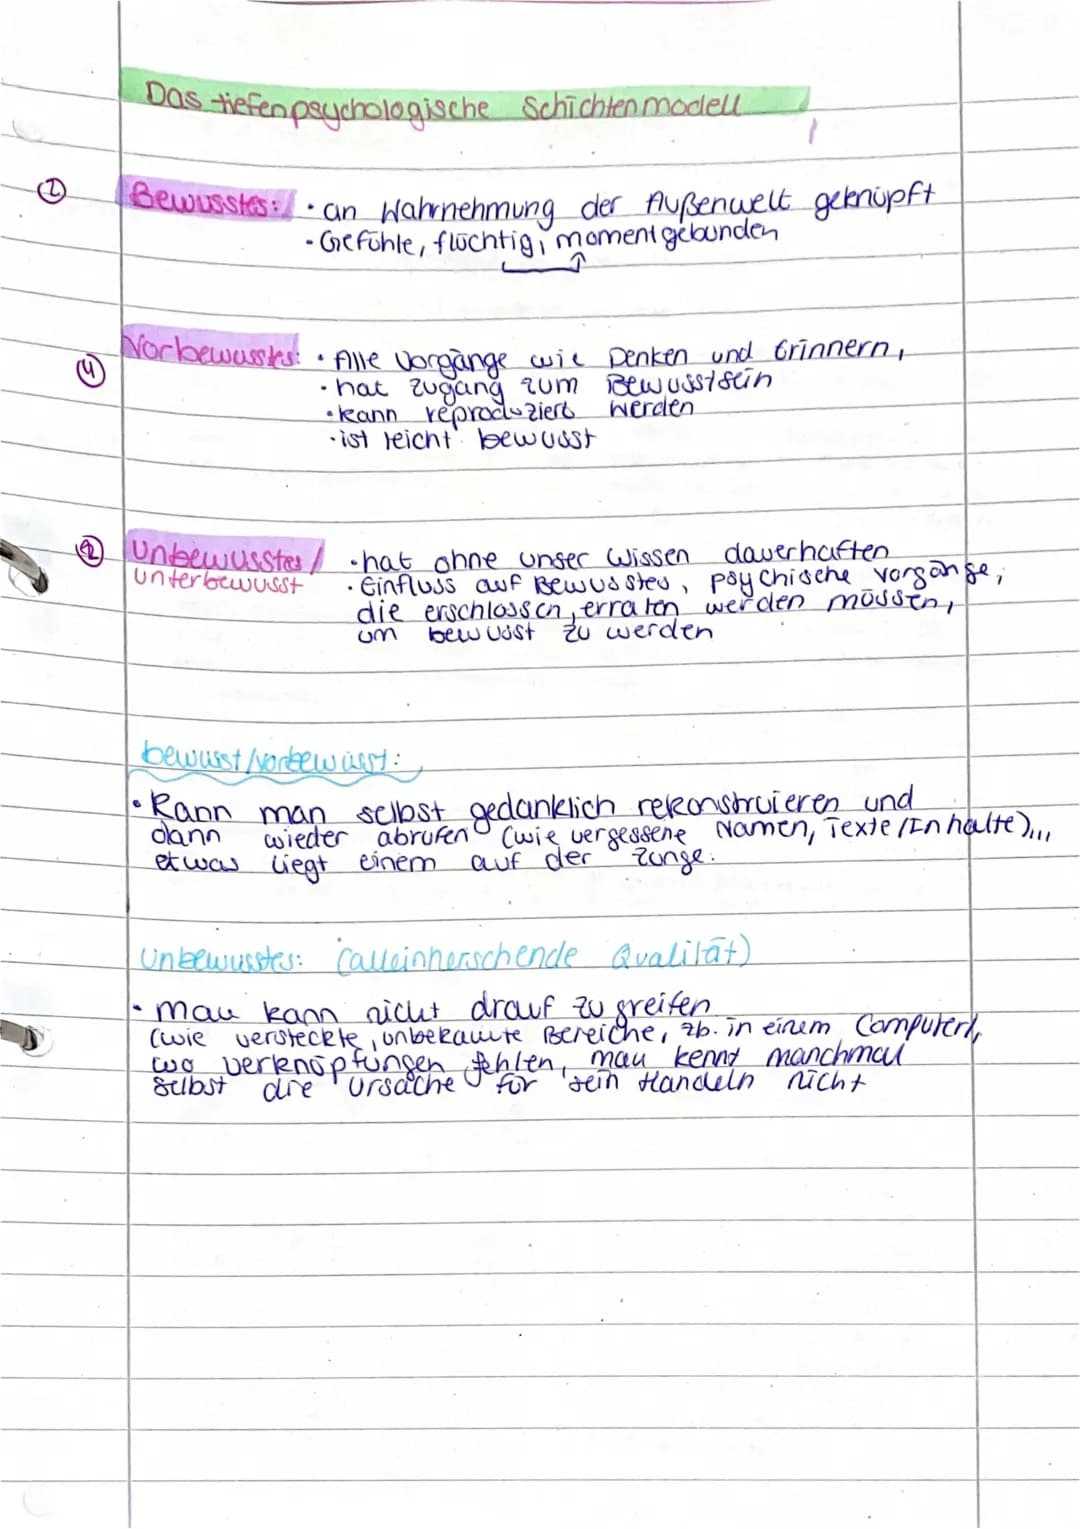 Das tiefenpsychologische Schichtenmodell
① Bewusstes: • an Wahrnehmung der Außenwelt geknüpft
- Gefühle, flüchtig, momentgebunden
④ Vorbewusstes: • Alle Vorgänge wie Denken und Erinnern,
• hat zugang zum Bewusstsein
• kann reproduziert werden
• ist leicht bewusst
② Unbewusstes / • hat ohne unser Wissen dauerhaften
unterbewusst • Einfluss auf Bewusstes, psychische vorgänge,
die erschlossen, erraten werden müssen,
um bewusst zu werden
bewusst/vorbewusst:
• Kann man selbst gedanklich rekonstruieren und
dann wieder abrufen (wie vergessene Namen, Texte/Inhalte)...
etwas liegt einem auf der Zunge.
Unbewusstes: (alleinherschende Qualität)
• man kann nicht drauf zu greifen
(wie versteckte, unbekannte Bereiche, zb. in einem Computer),
wo verknüpfungen fehlen, man kennt manchmal
selbst die Ursache für sein Handeln nicht